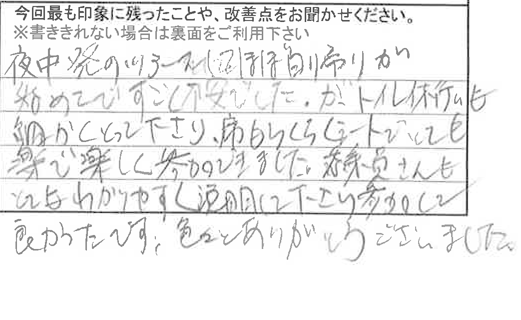 今回最も印象に残ったことや、改善点をお聞かせください。
※書ききれない場合は裏面をご利用下さい
夜中発のツアーでほぼ日帰りが
始めてですごく不安でした。が、トイレ休けいも
細かくとって下さり、席もらくらくシートでとても
楽で楽しく参加できました。添乗員さんも
とてもわかりやすく説明して下さり参加して
良かったです。色々とありがとうございました。